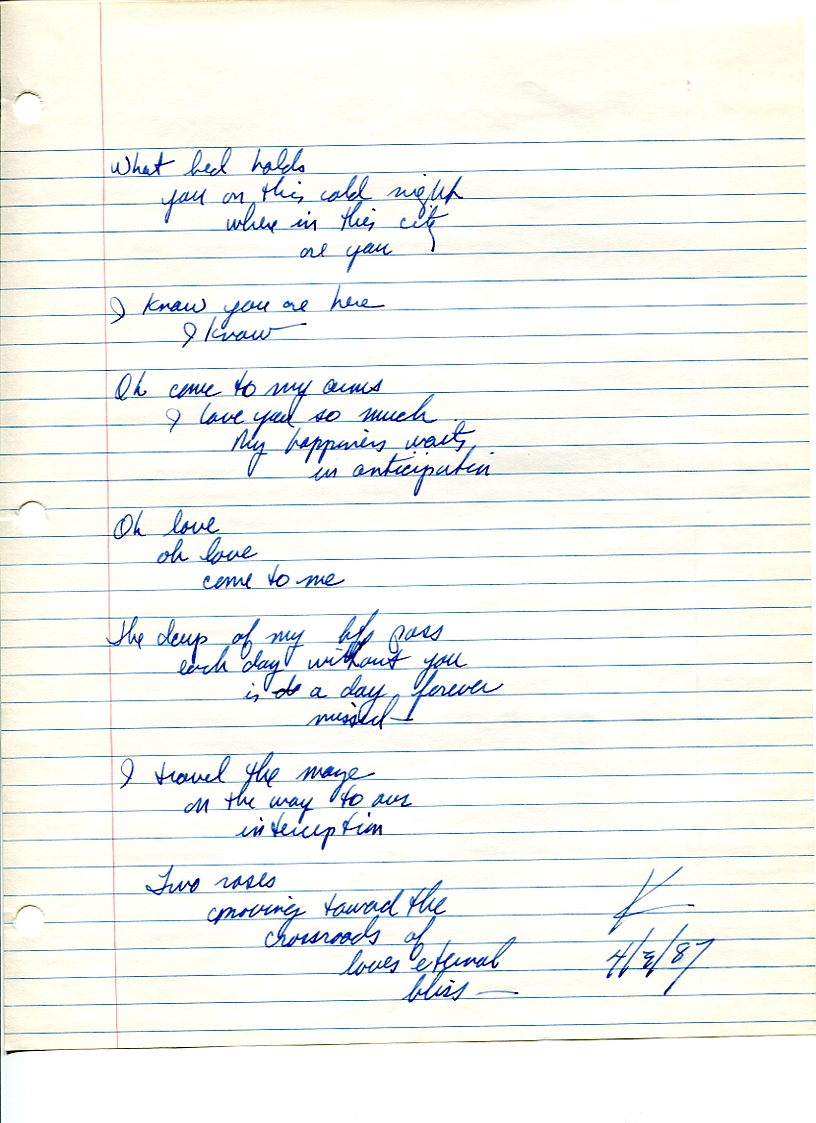 What bed holds
you on this cold night
where in this city
are you
I know you are here
I know
Oh come to my arms
I love you so much
My happiness waits
in anticipation
Oh love
oh love
come to me
The days of my life pass
each day without you
is a day forever
missed
I travel the maze
on the way to our
interception
Two roses
moving toward the
crossroads of
loves eternal
bliss —
K
4/3/87